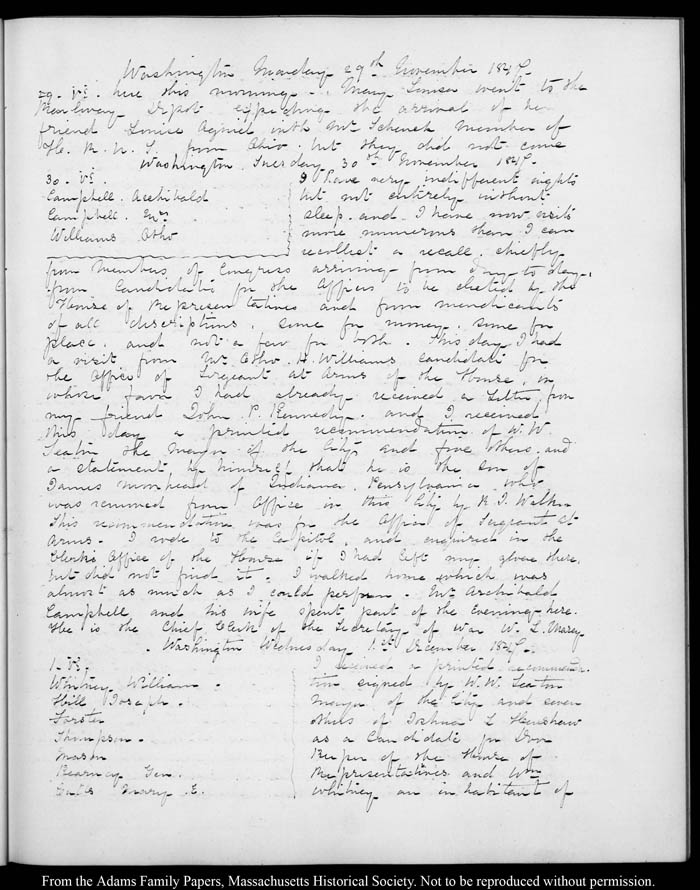 Washington Monday 29th November 1847
29. VI. here this morning. Mary Louisa went to the
Railway Depot expecting the arrival of her
friend Louisa Agniel with Mr Schenck member of
Ho. R. U. S. from Ohio. but they did not come
Washington, Tuesday 30th November 1847.
30. VI.
Campbell. Archibald
Campbell. Mrs
Williams Otho
I have very indifferent nights
but not entirely without
sleep. and I have now visits
more numerous than I can
recollect a recall, chiefly
from Members of Congress arriving from day to day,
from Candidates for the Offices to be elected by the
House of Representatives and from mendicants
of all descriptions, some for money, some for
place, and not a few for both. This day I had
a visit from Mr Otho H. Williams candidate for
the Office of Sergeant at Arms of the House, in
whose favor I had already received a Letter from
my friend John P. Kennedy. and I received
this day a printed recommendation of W. W.
Seaton the Mayor of the City and five others. and
a statement by himself that he is the son of
James Moorhead of Indiana, Pensylvania who
was removed from Office in this City by R. J. Walker
This recommendation was for the Office of Sergeant at
Arms. I rode to the Capitol, and enquired in the
Clerk's Office of the House if I had left my glove there,
but did not find it. I walked home which was
almost as much as I could perform. Mr Archibald
Campbell and his wife spent part of the Evening here.
He is the Chief Clerk of the Secretary of War W. L. Marcy
Washington Wednesday 1st December 1847.
1. VI.
Whitney William.
Hill Joseph.
Forster
Thompson.
Mason
Kearney Gen.
Gates Mary E.
I received a printed recommenda.
tion signed by W. W. Seaton
Mayor of the City and seven
others of Joshua L Henshaw
as a Candidate for Door
Keeper of the House of
Representatives and Wm
Whitney an inhabitant of
From the Adams Family Papers, Massachusetts Historical Society. Not to be reproduced without permission.